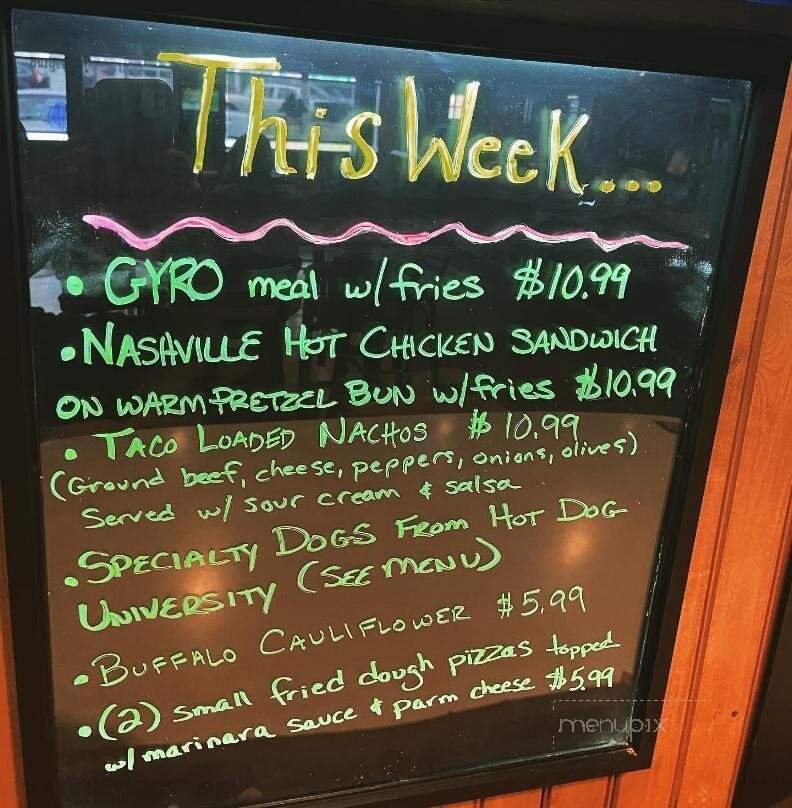 This Week...
• GYRO meal w/fries $10.99
• NASHVILLE HOT CHICKEN SANDWICH
ON WARM PRETZEL BUN w/fries $10.99
• TACO LOADED NACHOS $10.99
(Ground beef, cheese, peppers, onions, olives)
Served w/ sour cream & salsa
• SPECIALTY DOGS FROM HOT DOG
UNIVERSITY (SEE MENU)
• BUFFALO CAULIFLOWER $5.99
• (2) small fried dough pizzas topped
w/ marinara sauce & parm cheese $5.99
menupix